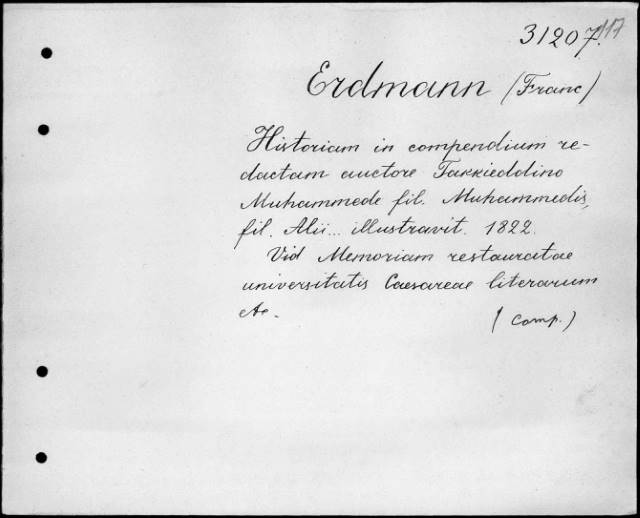 31207. 117
Erdmann (Franc)
Historiam in compendium re-
dactam auctore Takkieddino
Muhammede fil. Muhammedis,
fil. Alii... illustravit. 1822.
Vid Memoriam restauratae
universitatis Caesareae literarum
etc.
(comp.)